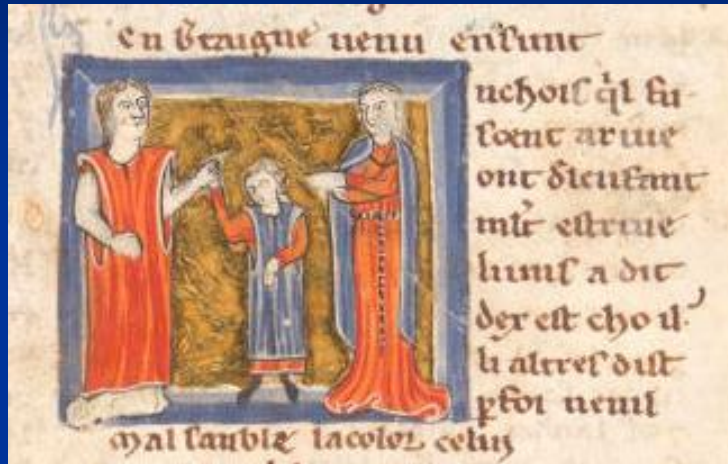 en b̃taugne uenu ensunt
nchois q̾l fu
soent ariue
ont dicufant
mlt estriue
luinſ a dit
der est cho il
li altreſ dist
ꝑfoi nenil
Mal ſanble la color celui